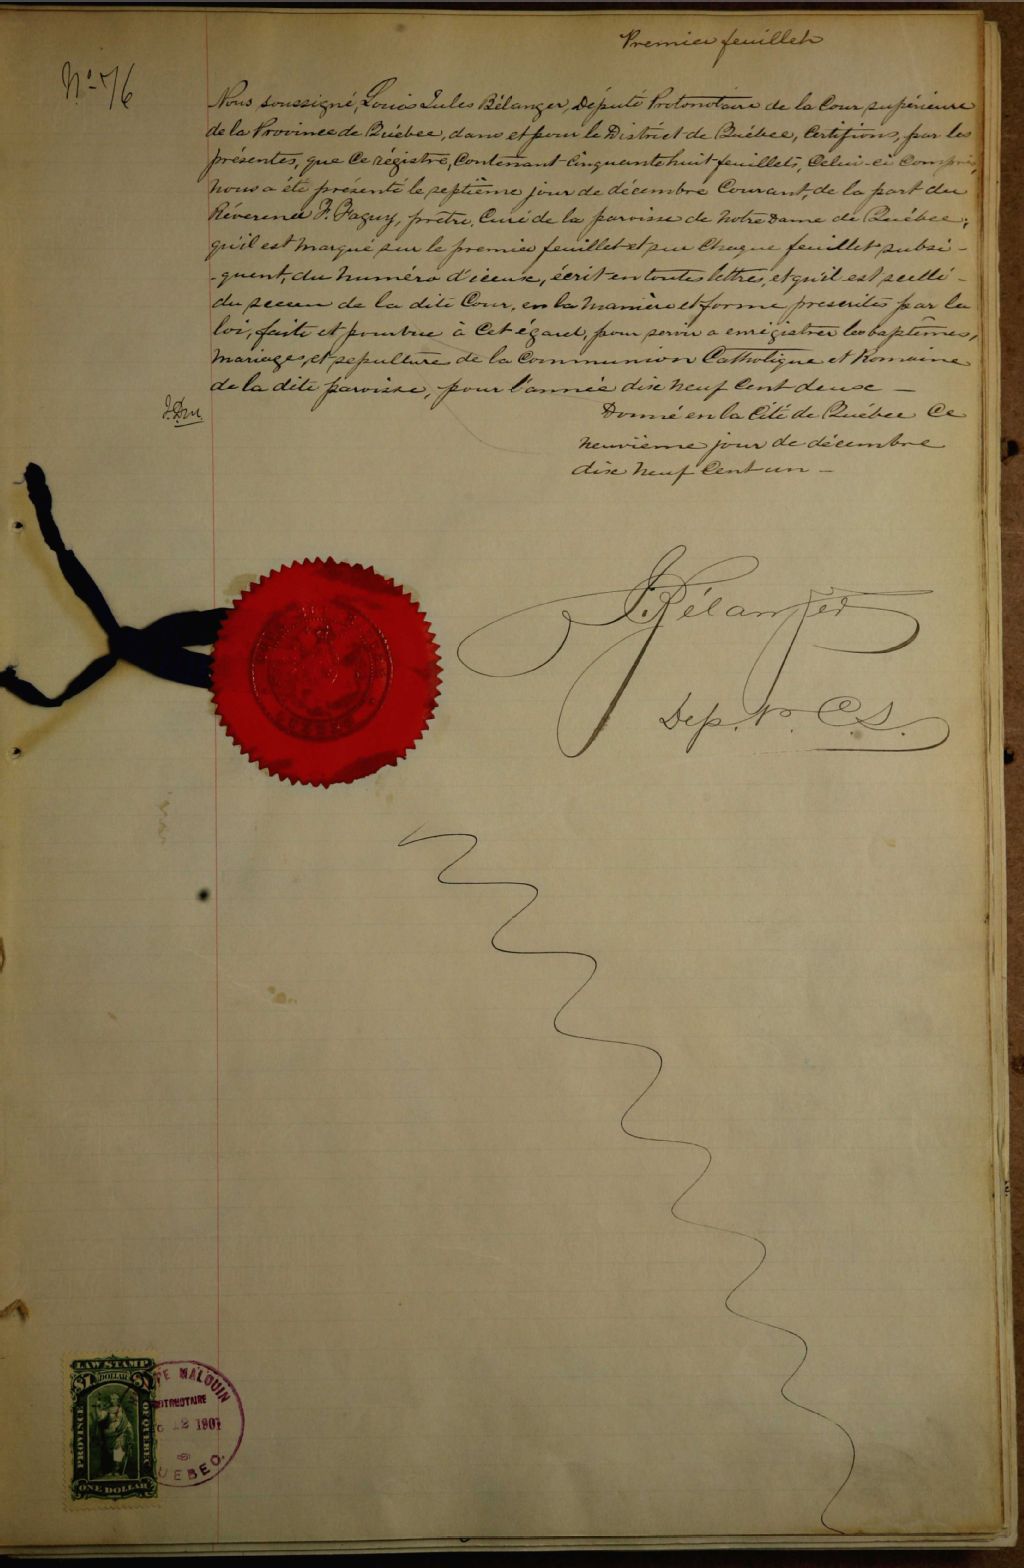 Premier feuillet
No 76
Nous soussigné, Louis Jules Bélanger, Député Protonotaire de la Cour supérieure
de la Province de Québec, dans et pour le District de Québec, Certifions, par les
présentes, que Ce régistre, Contenant Cinquante huit feuillets, Celui-ci Compris,
nous a été présenté le septième jour de décembre Courant, de la part du
Révérend F. Faguy, prêtre, Curé de la paroisse de Notre Dame de Québec,
qu'il est marqué sur le premier feuillet et sur Chaque feuillet subsé-
-quent, du numéro d'iceux, écrit en toute lettre, et qu'il est scellé
du sceau de la dite Cour, en la manière et forme prescrites par la
loi, faite et pourvue à Cet égard, pour servir a enrégistrer les baptêmes,
mariages, et sépulture de la Communion Catholique et Romaine
de la dite paroisse, pour l'année dix neuf Cent deux —
Donné en la Cité de Québec Ce
neuvième jour de décembre
dix neuf Cent un —
J. Bélanger
Dep. P. C. S.
LAW STAMP
$1 DOLLAR $1
PROVINCE OF QUEBEC
ONE DOLLAR
MALOUIN
1901